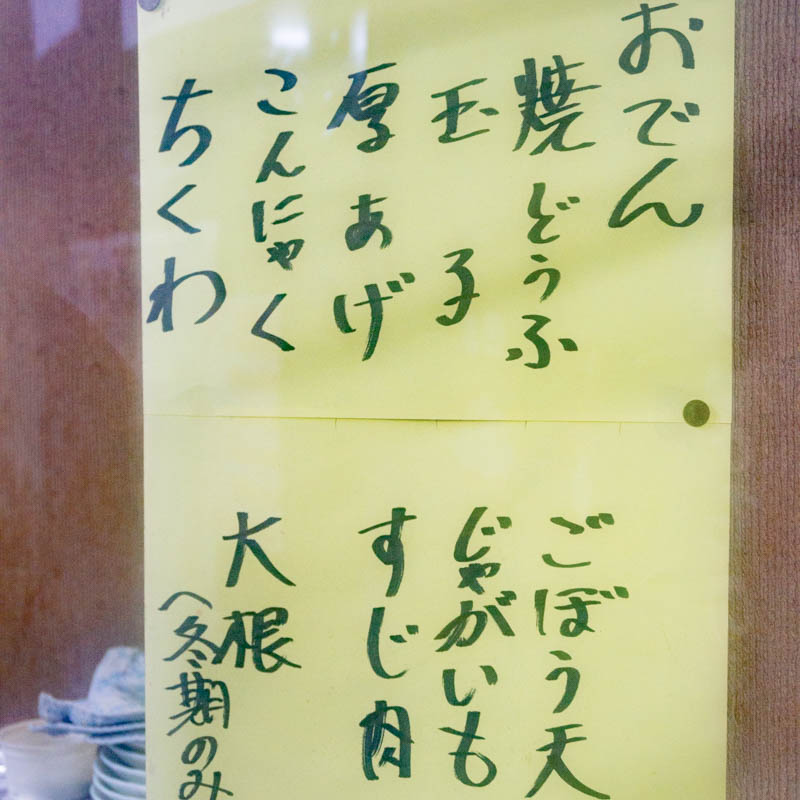 おでん
焼どうふ
玉子
厚あげ
こんにゃく
ちくわ
ごぼう天
じゃがいも
すじ肉
大根
(冬期のみ